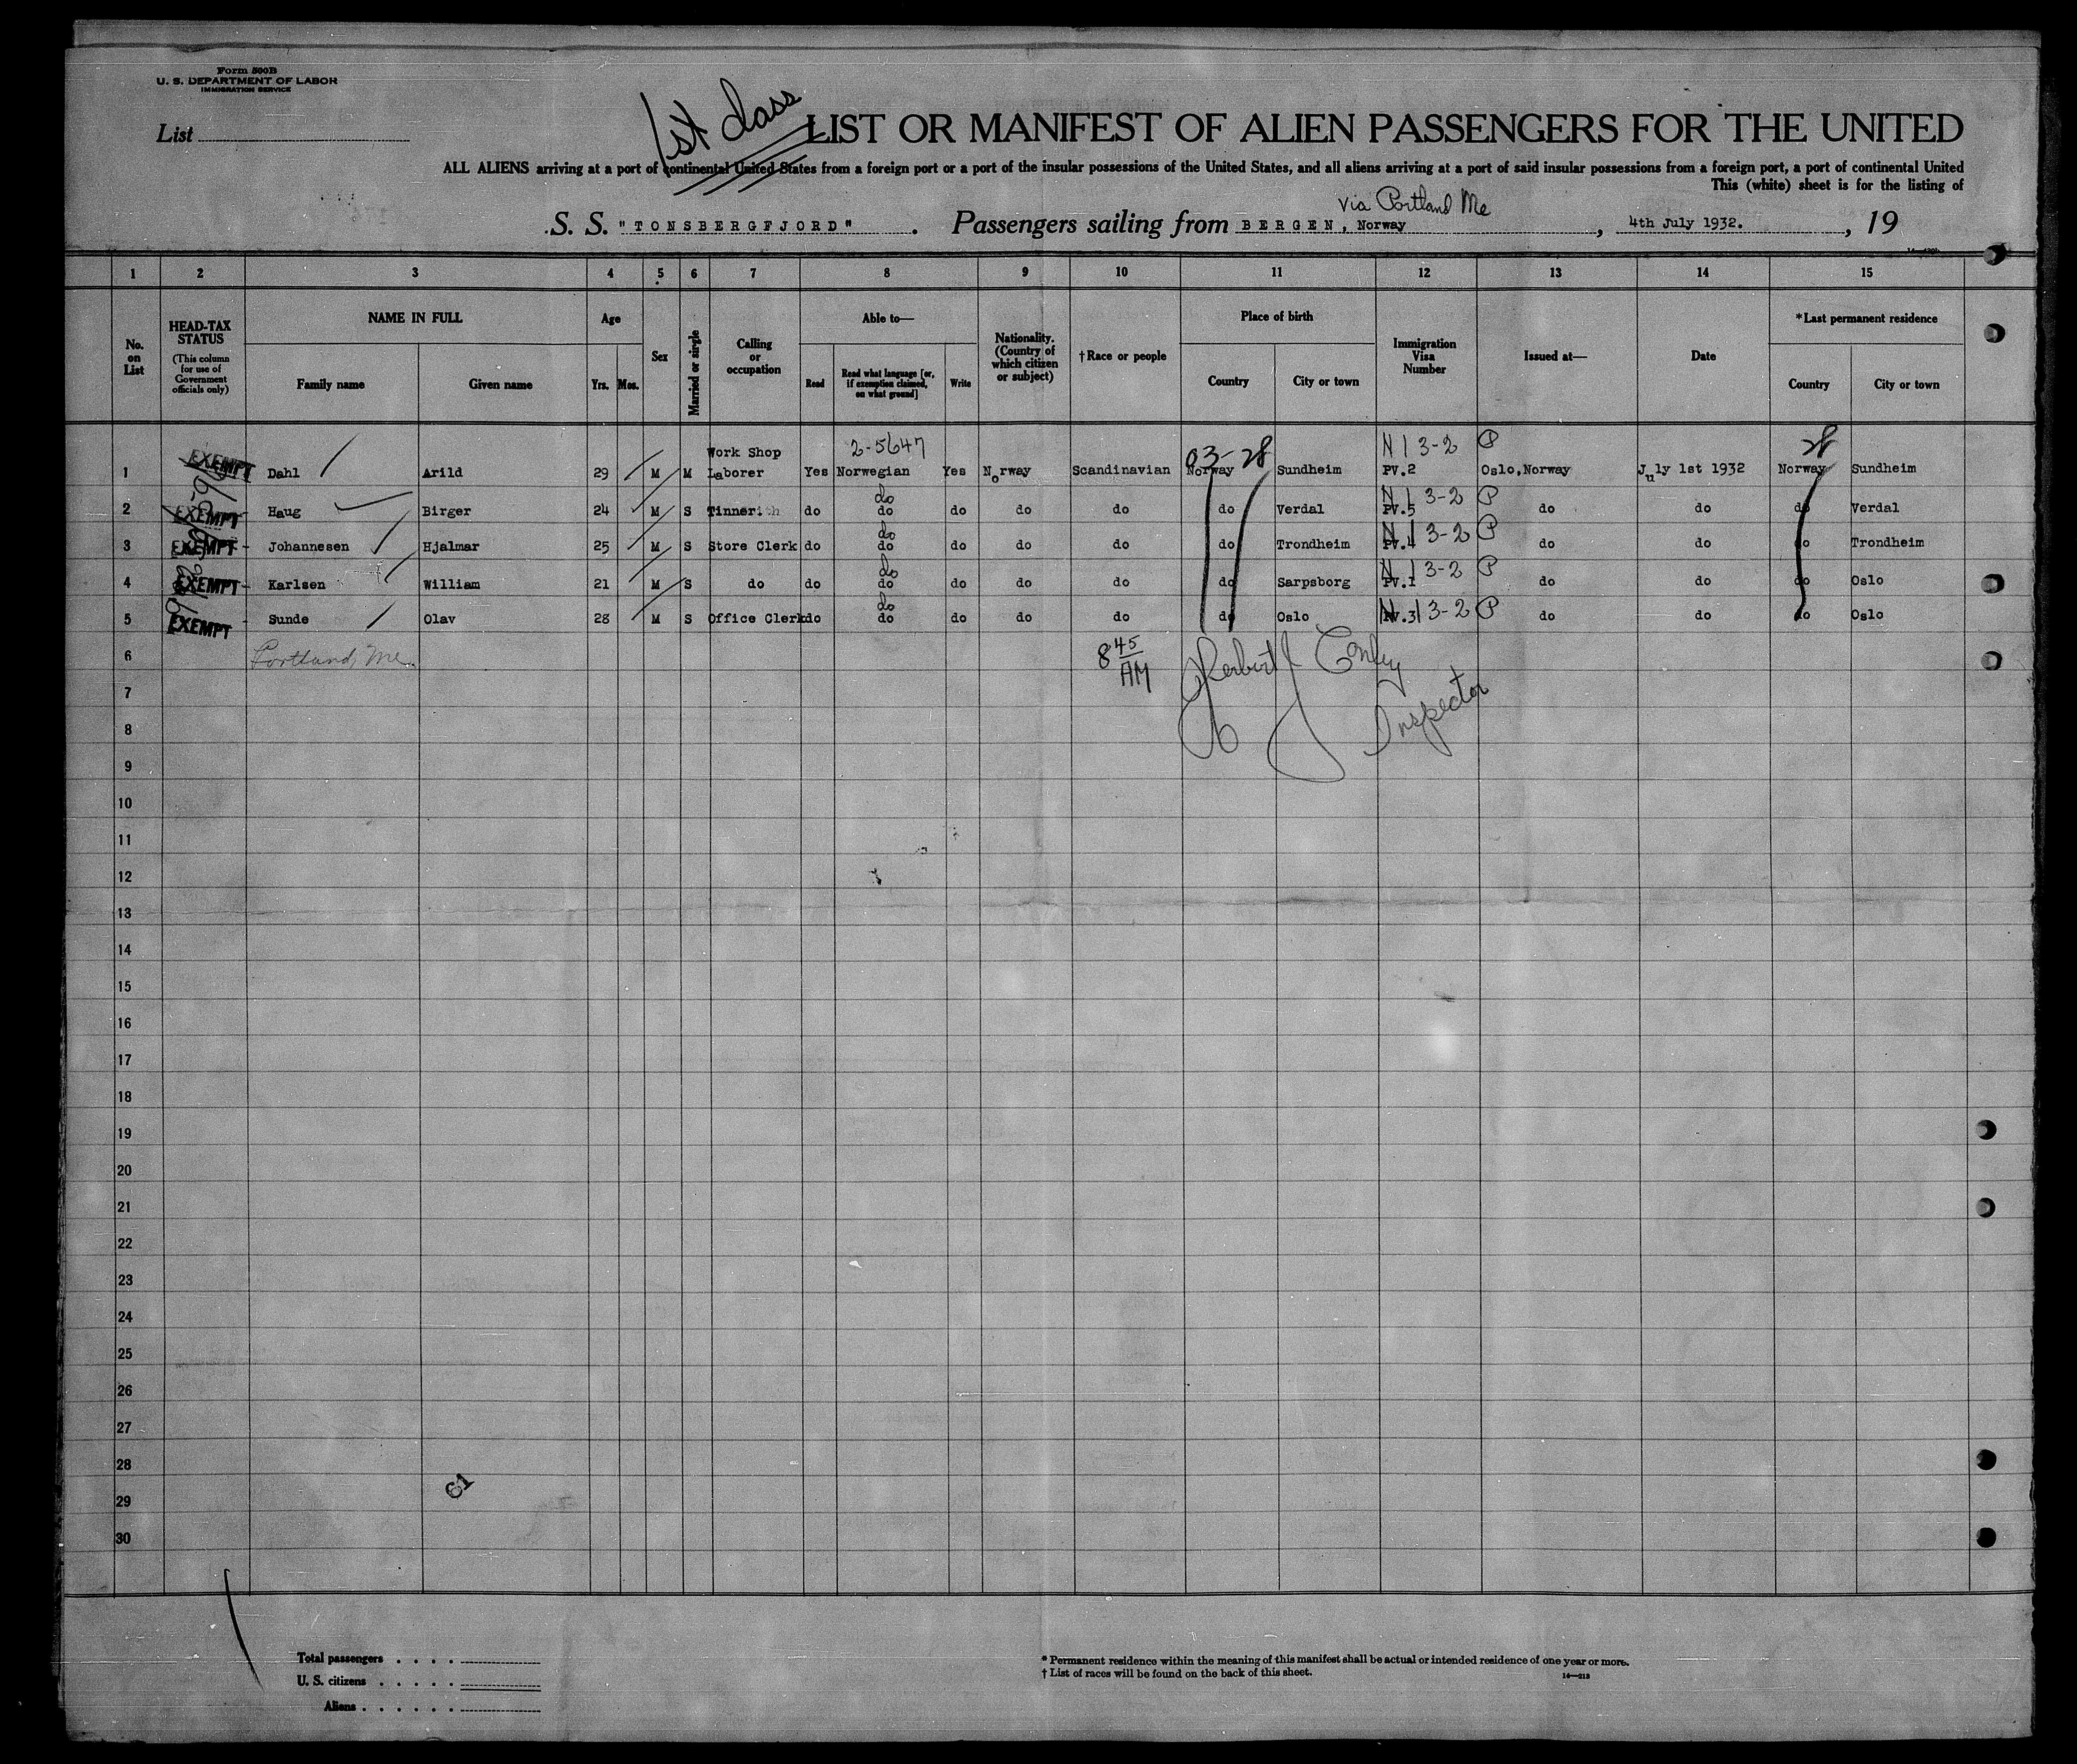 Form 500B
U. S. DEPARTMENT OF LABOR
IMMIGRATION SERVICE
List
1st class
LIST OR MANIFEST OF ALIEN PASSENGERS FOR THE UNITED
ALL ALIENS arriving at a port of continental United States from a foreign port or a port of the insular possessions of the United States, and all aliens arriving at a port of said insular possessions from a foreign port, a port of continental United
This (white) sheet is for the listing of
via Portland Me
S. S. "TONSBERGFJORD" . Passengers sailing from BERGEN, Norway , 4th July 1932. , 19
1 2 3 4 5 6 7 8 9 10 11 12 13 14 15
No. on List
HEAD-TAX STATUS (This column for use of Government officials only)
NAME IN FULL
Family name Given name
Age
Yrs. Mos.
Sex
Married or single
Calling or occupation
Able to—
Read
Read what language [or, if exemption claimed, on what ground]
Write
Nationality. (Country of which citizen or subject)
†Race or people
Place of birth
Country City or town
Immigration Visa Number
Issued at—
Date
*Last permanent residence
Country City or town
2-5647 03-28 N I 3-2 P 28
1 EXEMPT Dahl Arild 29 M M Work Shop Laborer Yes Norwegian Yes Norway Scandinavian Norway Sundheim PV.2 Oslo,Norway July 1st 1932 Norway Sundheim
do N I 3-2 P
2 EXEMPT Haug Birger 24 M S Tinner do do do do do do Verdal PV.5 do do do Verdal
do N I 3-2 P
3 EXEMPT Johannesen Hjalmar 25 M S Store Clerk do do do do do do Trondheim PV.4 do do do Trondheim
do N I 3-2 P
4 EXEMPT Karlsen William 21 M S do do do do do do do Sarpsborg PV.1 do do do Oslo
do N I 3-2 P
5 EXEMPT Sunde Olav 28 M S Office Clerk do do do do do do Oslo PV.3 do do do Oslo
6 Portland, Me. 8 45 AM Herbert J Conley
7 Inspector
8
9
10
11
12
13
14
15
16
17
18
19
20
21
22
23
24
25
26
27
28
61
29
30
Total passengers . . . .
U. S. citizens . . . . .
Aliens . . . . . .
* Permanent residence within the meaning of this manifest shall be actual or intended residence of one year or more.
† List of races will be found on the back of this sheet.
14—213